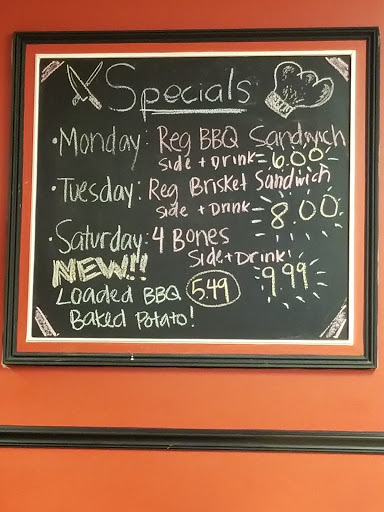 Specials
• Monday: Reg BBQ Sandwich
Side + Drink = 6.00
• Tuesday: Reg Brisket Sandwich
Side + Drink 8.00
• Saturday: 4 Bones
Side + Drink 9.99
NEW!!
Loaded BBQ 5.49
Baked Potato!